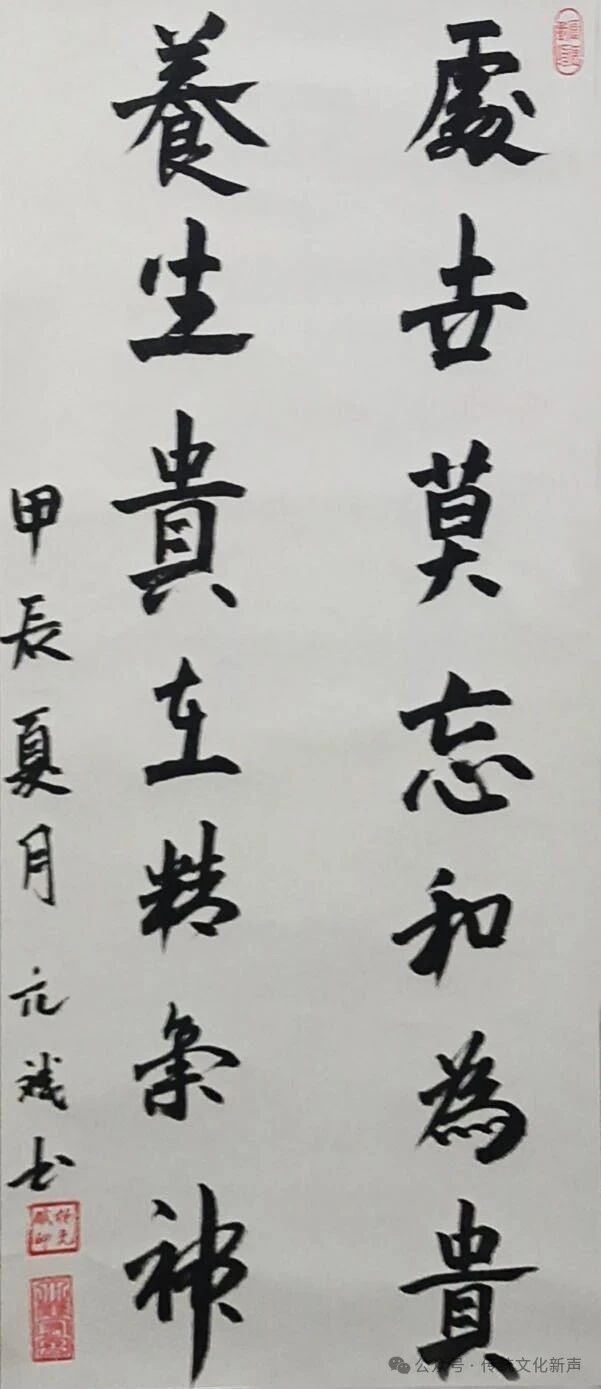 處世莫忘和為貴
養生貴在精氣神
甲辰夏月 元斌书
公众号 · 传统文化新声